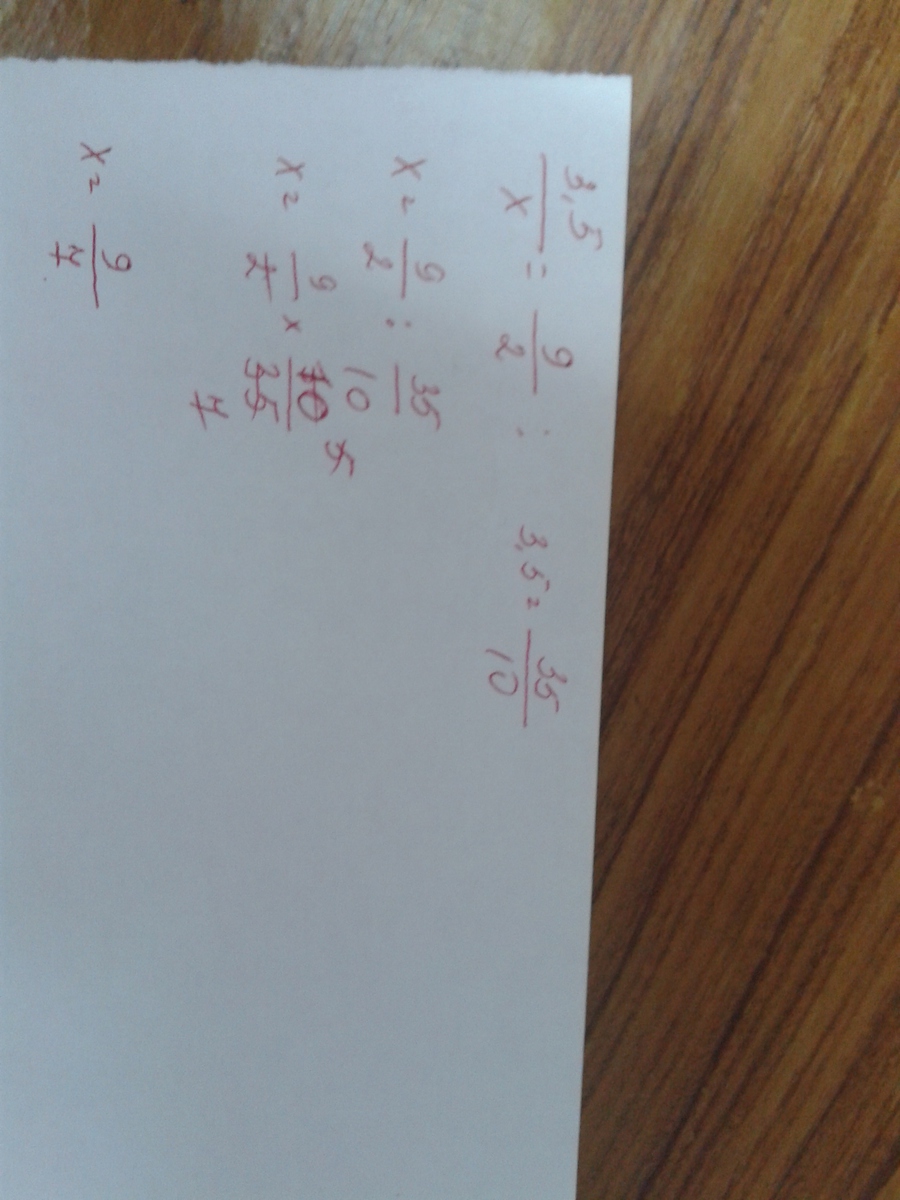 3,5/x = 9/2 : 3,5 = 35/10
x = 9/2 : 35/10
x = 9/2 x 10/35 5 7
x = 9/7